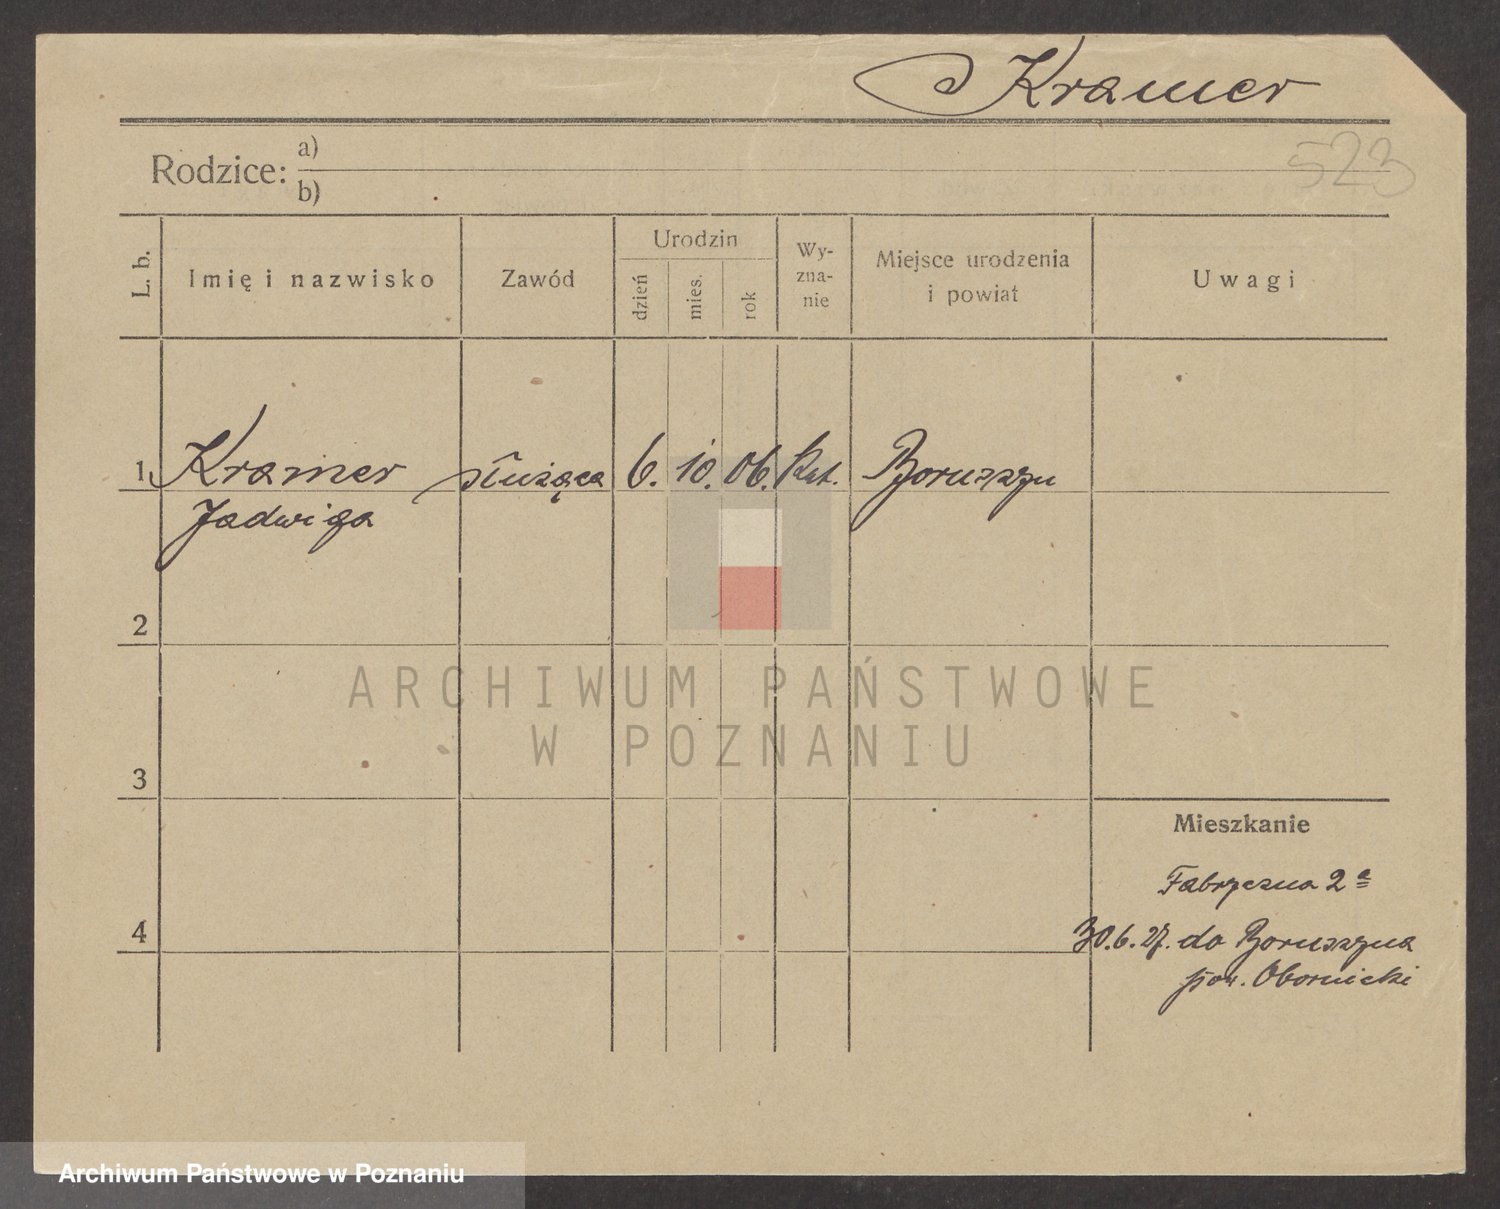 Kramer
523
Rodzice: a)
b)
L. b.
Imię i nazwisko
Zawód
Urodzin
dzień
mies.
rok
Wy-
zna-
nie
Miejsce urodzenia
i powiat
Uwagi
1 Kramer służąca 6. 10. 06. kat. Boruszyn
Jadwiga
2
ARCHIWUM PAŃSTWOWE
W POZNANIU
3
Mieszkanie
Fabryczna 2a
4
30.6.27. do Boruszyna
pow. Obornicki
Archiwum Państwowe w Poznaniu